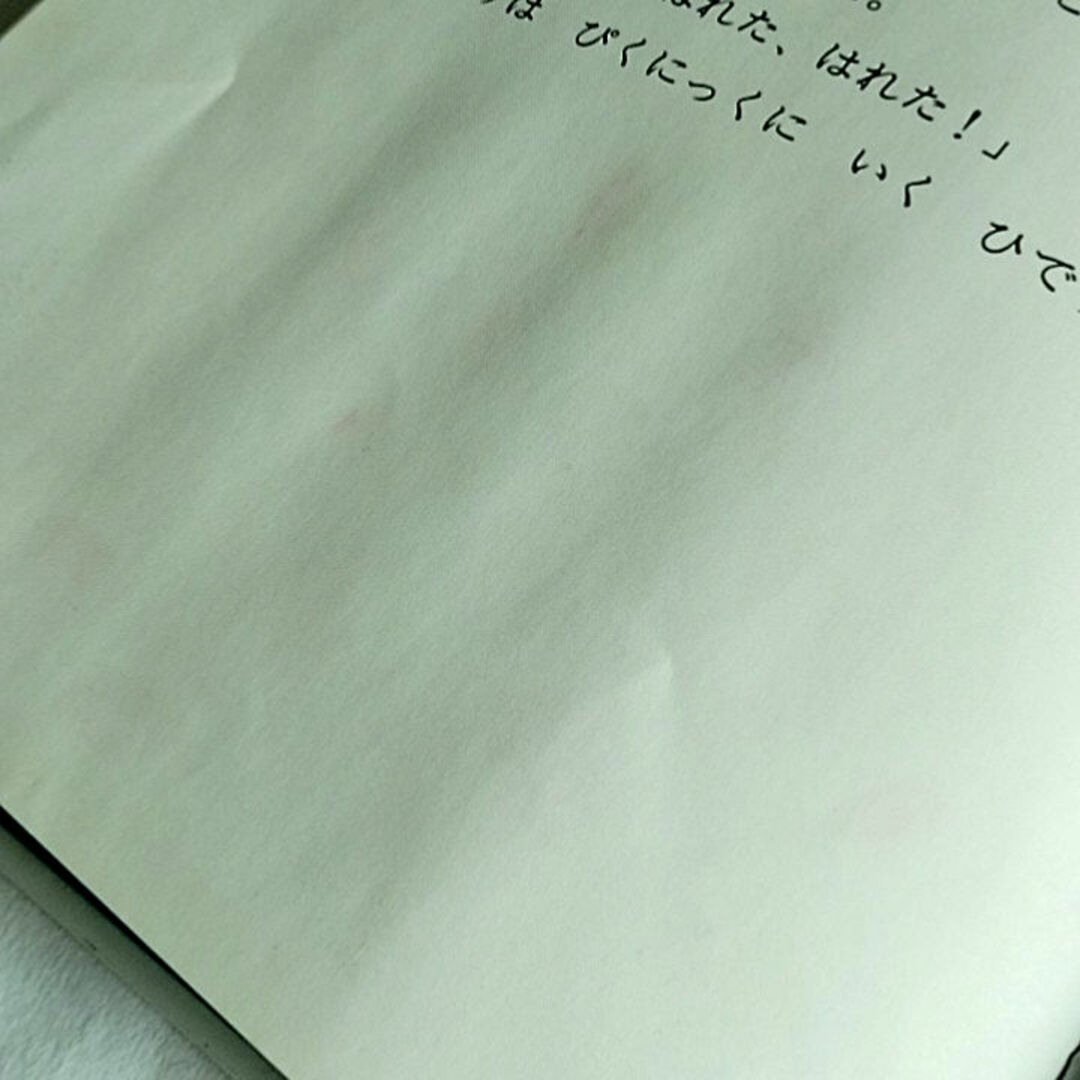 はれた、はれた!」
は ぴくにっくに いく ひで